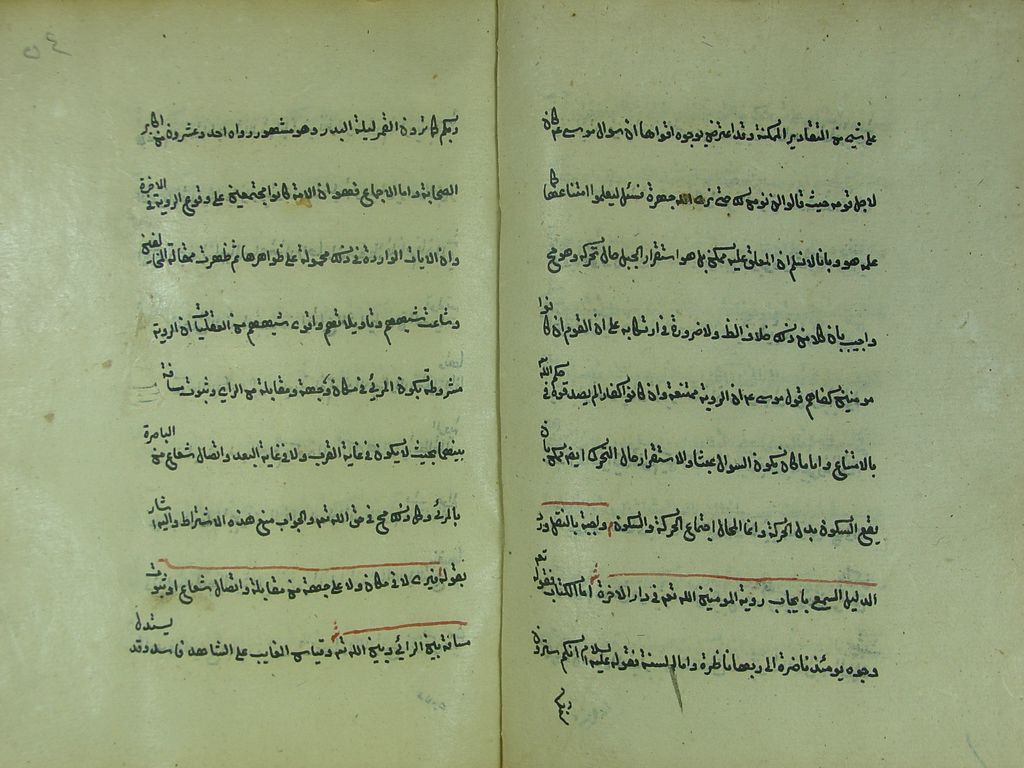 على شئ من التقادير الممكنة وقد اعترض بوجوه اقواها ان سوال موسى عم كان
لاجل قومه حيث قالوا لن نومن لك حتى نرى الله جهرة فسئل ليعلموا امتناعها كما
علمه هو وبانا لا نسلم ان المعلق عليه ممكن بل هو استقرار الجبل حال تحركه وهو مح
واجيب بان كلا من ذلك خلاف الظ ولا ضرورة في ارتكابه على ان القوم ان كانوا
مومنين كفاهم قول موسى عم ان الروية ممتنعة وان كانوا كفارا لم يصدقوه في حكم الله تع
بالامتناع واياما كان يكون السوال عبثا والاستقرار حال التحرك ايض ممكن بان
يقع السكون بدل الحركة وانما المحال اجتماع الحركة والسكون واجبة بالنقل ورد
الدليل السمعي بايجاب روية المومنين الله تع في دار الاخرة اما الكتاب فقوله تع
وجوه يومئذ ناضرة الى ربها ناظرة واما السنة فقوله عليه السلام انكم سترون
ربكم
ربكم كما ترون القمر ليلة البدر وهو مشهور رواه احد وعشرون من اكابر
الصحابة واما الاجماع فهو ان الامة كانوا مجتمعين على وقوع الروية في الاخرة
وان الايات الواردة في ذلك محمولة على ظواهرها ثم ظهرت مقالة المخالفين
وشاعت شبههم وتاويلاتهم واقوى شبههم من العقليات ان الروية
مشروطة بكون المرئي في مكان وجهة ومقابلة من الراى وثبوت مسافة
بينهما بحيث لا يكون في غاية القرب ولا في غاية البعد واتصال شعاع من الباصرة
بالمرئ وكل ذلك مح في حق الله تع والجواب منع هذه الاشتراط واليه اشار
بقوله فيرى لا في مكان ولا على جهة من مقابلة واتصال شعاع او ثبوت
مسافة بين الرائي وبين الله تع وقياس الغايب على الشاهد فاسد وقد يستدل